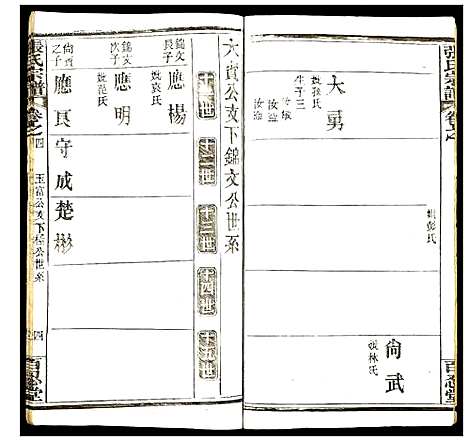 張氏宗譜
卷之
百忍堂
大勇
娶孫氏
生子三
汝
汝
汝滋
娶彭氏
尚武
娶林氏
六貢公支下錦文公世系
十一世
十二世
十三世
十四世
十五世
錦文
長子
應楊
娶袁氏
錦文
次子
應明
娶范氏
尚質
之子
應良
守成
楚彬
張氏宗譜
卷之四
玉富公支下
公世系
四
百忍堂